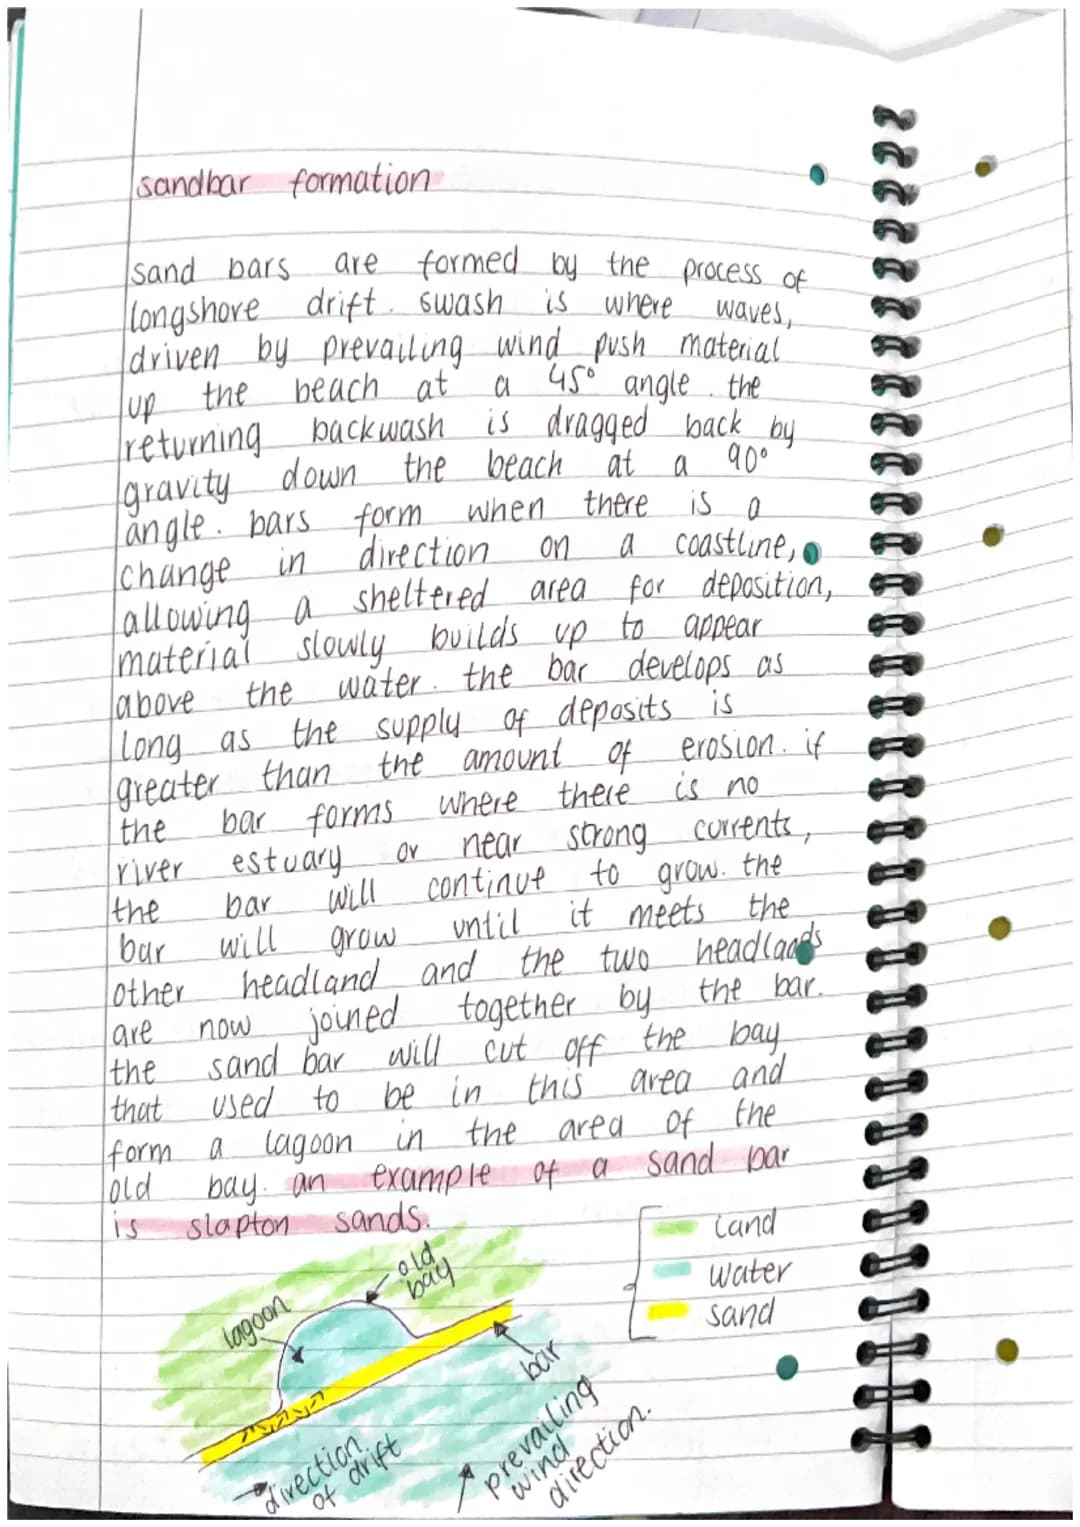 sandbar formation
sand bars are formed by the process of
longshore drift. swash is where waves,
driven by prevailing wind push material
up the beach at a 45° angle. the
returning backwash is dragged back by
gravity down the beach at a 90°
angle. bars form when there is a
change in direction on a coastline,
allowing a sheltered area for deposition,
material slowly builds up to appear
above the water. the bar develops as
long as the supply of deposits is
greater than the amount of erosion. if
the bar forms where there is no
river estuary or near strong currents,
the bar will continue to grow. the
bar will grow until it meets the
other headland and the two headlands
are now joined together by the bar.
the sand bar will cut off the bay
that used to be in this area and
form a lagoon in the area of the
old bay. an example of a sand bar
is slapton sands.
land
water
sand
old
bay
lagoon
bar
direction
of drift
prevailing
wind
direction.